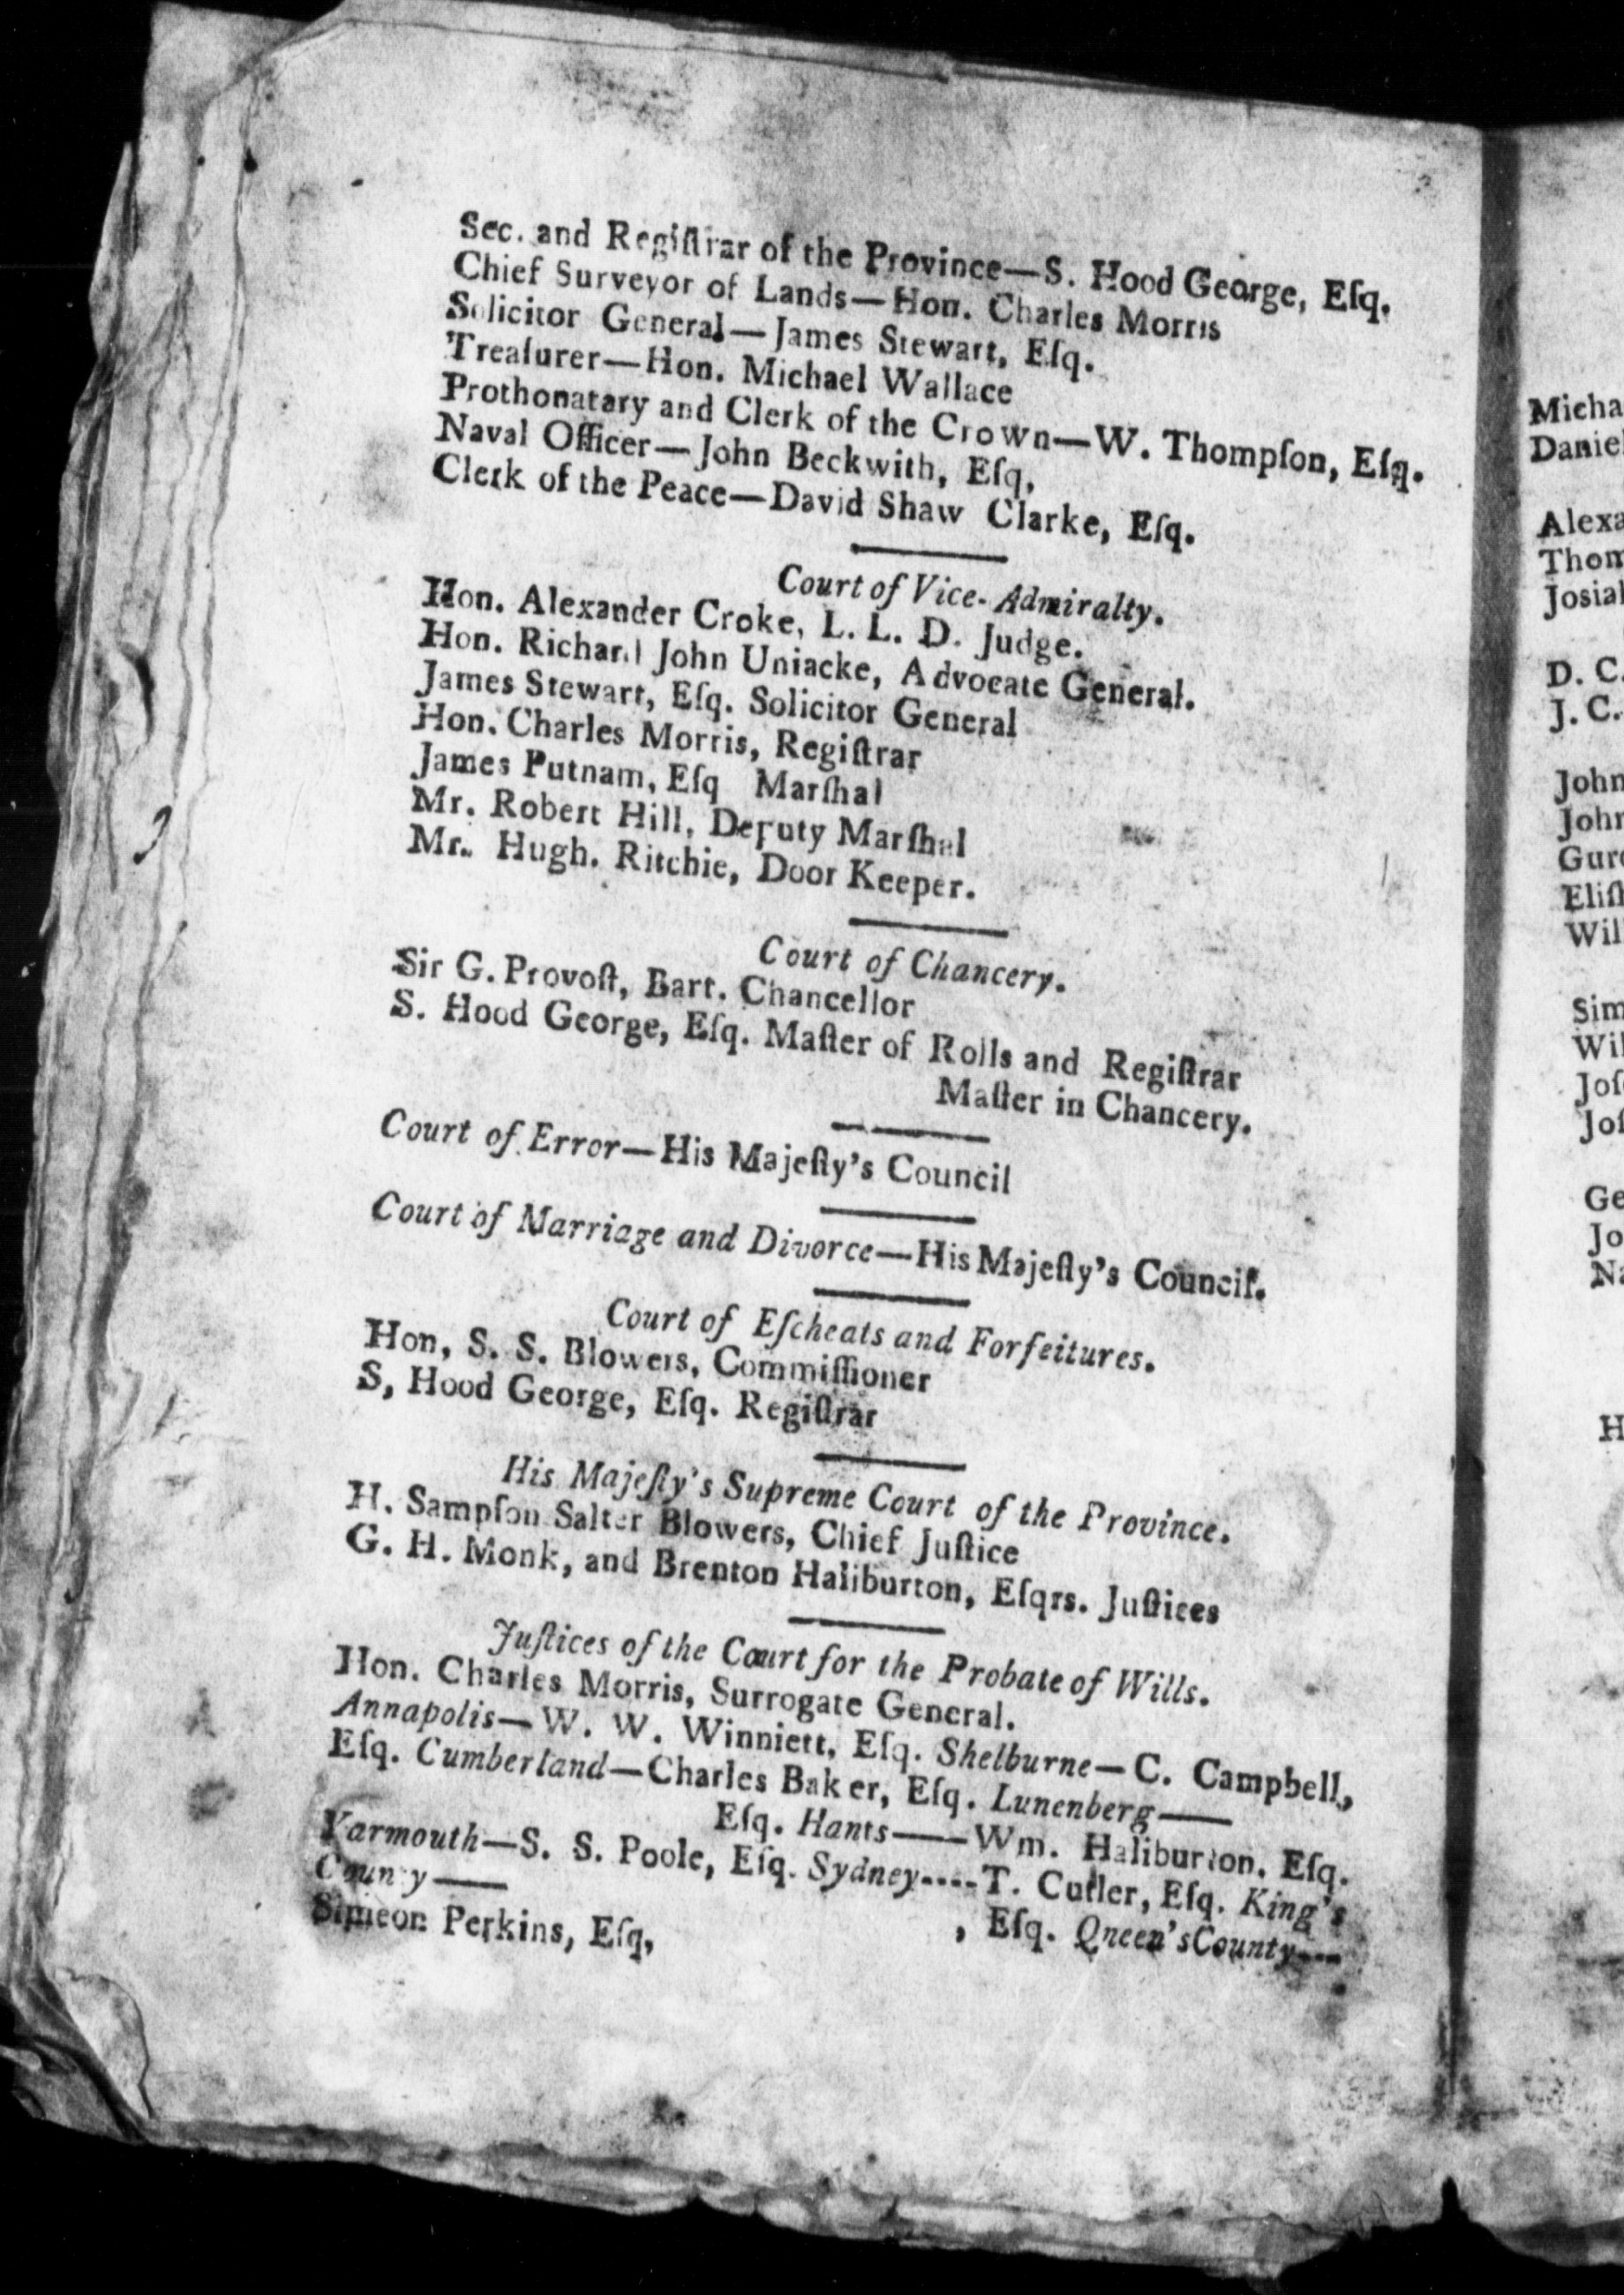 Sec. and Regiſtrar of the Province—S. Hood George, Eſq.
Chief Surveyor of Lands—Hon. Charles Morris
Solicitor General—James Stewart, Eſq.
Treaſurer—Hon. Michael Wallace
Prothonatary and Clerk of the Crown—W. Thompſon, Eſq.
Naval Officer—John Beckwith, Eſq,
Clerk of the Peace—David Shaw Clarke, Eſq.
Court of Vice-Admiralty.
Hon. Alexander Croke, L. L. D. Judge.
Hon. Richard John Uniacke, Advocate General.
James Stewart, Eſq. Solicitor General
Hon. Charles Morris, Regiſtrar
James Putnam, Eſq Marſhal
Mr. Robert Hill, Deputy Marſhal
Mr. Hugh. Ritchie, Door Keeper.
Court of Chancery.
Sir G. Provoſt, Bart. Chancellor
S. Hood George, Eſq. Maſter of Rolls and Regiſtrar
Maſter in Chancery.
Court of Error—His Majeſty's Council
Court of Marriage and Divorce—His Majeſty's Council.
Court of Eſcheats and Forfeitures.
Hon, S. S. Blowers, Commiſſioner
S, Hood George, Eſq. Regiſtrar
His Majeſty's Supreme Court of the Province.
H. Sampſon Salter Blowers, Chief Juſtice
G. H. Monk, and Brenton Haliburton, Eſqrs. Juſtices
Juſtices of the Court for the Probate of Wills.
Hon. Charles Morris, Surrogate General.
Annapolis—W. W. Winniett, Eſq. Shelburne—C. Campbell,
Eſq. Cumberland—Charles Baker, Eſq. Lunenberg——
Eſq. Hants——Wm. Haliburton, Eſq.
Yarmouth—S. S. Poole, Eſq. Sydney----T. Cutler, Eſq. King's
County—— , Eſq. Qneen'sCounty---
Simeon Perkins, Eſq,
Micha
Daniel
Alexa
Thom
Josiah
D. C.
J. C.
John
John
Gur
Eliſh
Wil
Sim
Wil
Joſ
Joſ
Ge
Jo
Na
H